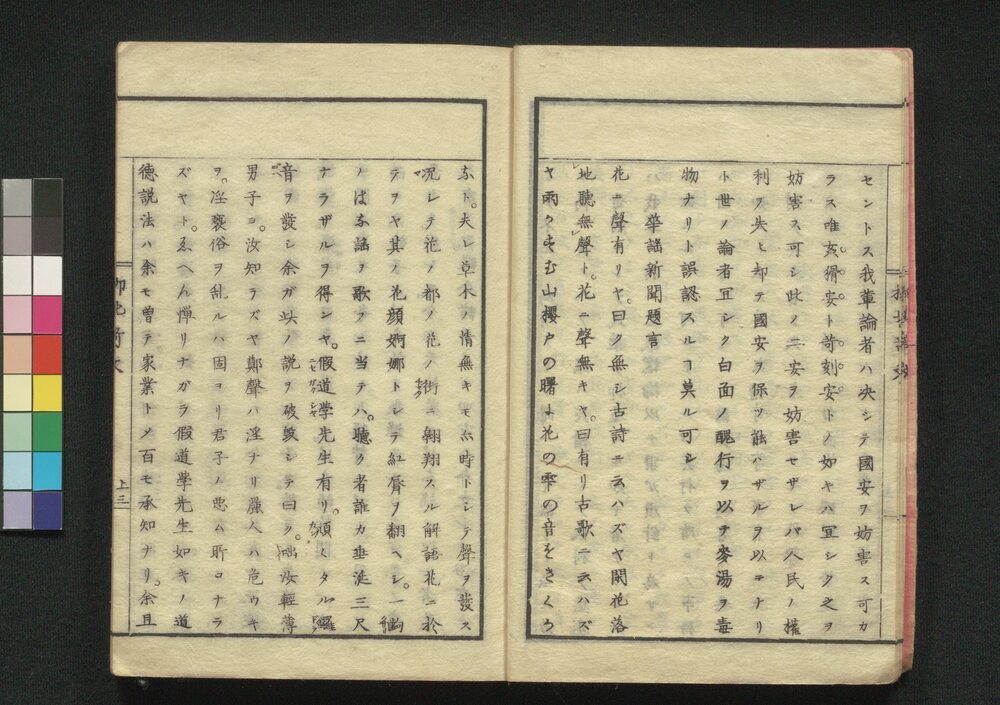 セントス我輩論者ハ决シテ國安ヲ妨害ス可カ
ラス唯亥猾安ト苛刻安トノ如キハ冝シク之ヲ
妨害ス可シ此ノ二安ヲ妨害セザレバ人民ノ權
利ヲ失ヒ却テ國安ヲ保ツ能ハザルヲ以テナリ
ト世ノ論者冝シク白面ノ醜行ヲ以テ麥湯ヲ毒
物ナリト誤認スルコ莫ル可シ
華謡新聞題言
花ニ聲有リヤ。曰ク無シ古詩ニ云ハズヤ開花落
地聽無聲ト。花ニ聲無キヤ。曰有リ古歌ニ云ハズ
ヤ雨そゝむ山櫻戸の曙よ花の雫の音をきくろ
ト。夫レ草木ノ情無キモ亦時トシテ聲ヲ發ス
况シテ花ノ都ノ花ノ街ニ翱翔スル解語花ニ於
テヲヤ其ノ花顔婀娜トシテ紅唇ヲ翻ヘシ。一
ノは謡ヲ歌フニ当テハ。聽ク者誰カ垂涎三尺
ナラザルヲ得ンヤ。假道学先生有リ。頑くタル
音ヲ發シ余ガ此ノ説ヲ破毀シテ曰ク。咄汝輕薄
男子ヨ。汝知ラズヤ鄭聲ハ淫ナリ麗人ハ危ウキ
ヲ。淫褻俗ヲ乱ルハ固ヨリ君子ノ悪ム所ロナラ
ズヤト。ゑへん憚リナガラ假道學先生如キノ道
德説法ハ余モ曽テ家業トメ百モ承知ナリ。余且
上三